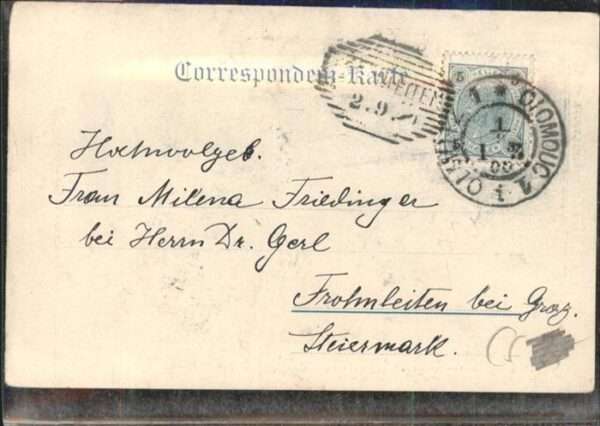 Correspondenz-Karte
2.9.
5
OLOMOUC 1
1
Hochwolgeb.
Frau Milena Friedinger
bei Herrn Dr. Gerl
Frohnleiten bei Graz.
Steiermark.